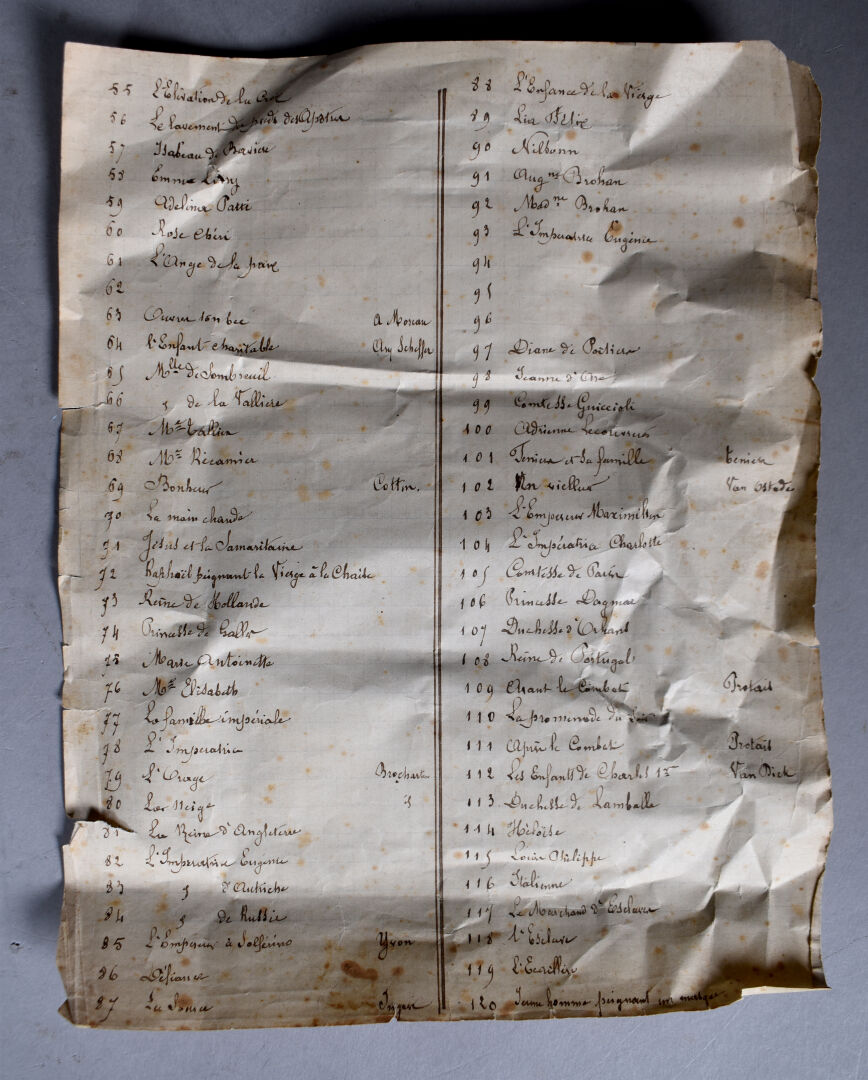 55 L'Elévation de la Croix
56 Le lavement de pieds des Apôtres
57 Isabeau de Bavière
58 Emma Livry
59 Adelina Patti
60 Rose Chéri
61 L'Ange de la paix
62
63 Ouvrez ton bec A Moreau
64 l'Enfant charitable Ary Scheffer
65 Mlle de Sombreuil
66 " de la Vallière
67 Me Tallien
68 Me Récamier
69 Bonheur Cottin.
70 La main chaude
71 Jésus et la Samaritaine
72 Raphaël peignant la Vierge à la Chaise
73 Reine de Hollande
74 Princesse de Galles
75 Marie Antoinette
76 Me Elisabeth
77 La famille impériale
78 L'Impératrice
79 L'Orage Brochart
80 La neige "
81 La Reine d'Angleterre
82 L'Impératrice Eugénie
83 " d'Autriche
84 " de Russie
85 L'Empereur à Solférino Yvon
86 Défiance
87 La Source Ingres
88 L'Enfance de la Vierge
89 Lia Félix
90 Nilsonn
91 Augne Brohan
92 Madne Brohan
93 L'Impératrice Eugénie
94
95
96
97 Diane de Poitiers
98 Jeanne d'Arc
99 Comtesse Guiccioli
100 Adrienne Lecouvreur
101 Teniers et sa famille Teniers
102 Un vielleur Van Ostade
103 L'Empereur Maximilien
104 L'Impératrice Charlotte
105 Comtesse de Paris
106 Princesse Dagmar
107 Duchesse d'Orléans
108 Reine de Portugal
109 Avant le Combat Protais
110 La promenade du Soir
111 Après le Combat Protais
112 Les Enfants de Charles 1er Van Dick
113 Duchesse de Lamballe
114 Héloïse
115 Louis Philippe
116 Italienne
117 Le Marchand d'Esclaves
118 L'Esclave
119 L'Ecaillère
120 Jeune homme peignant un masque